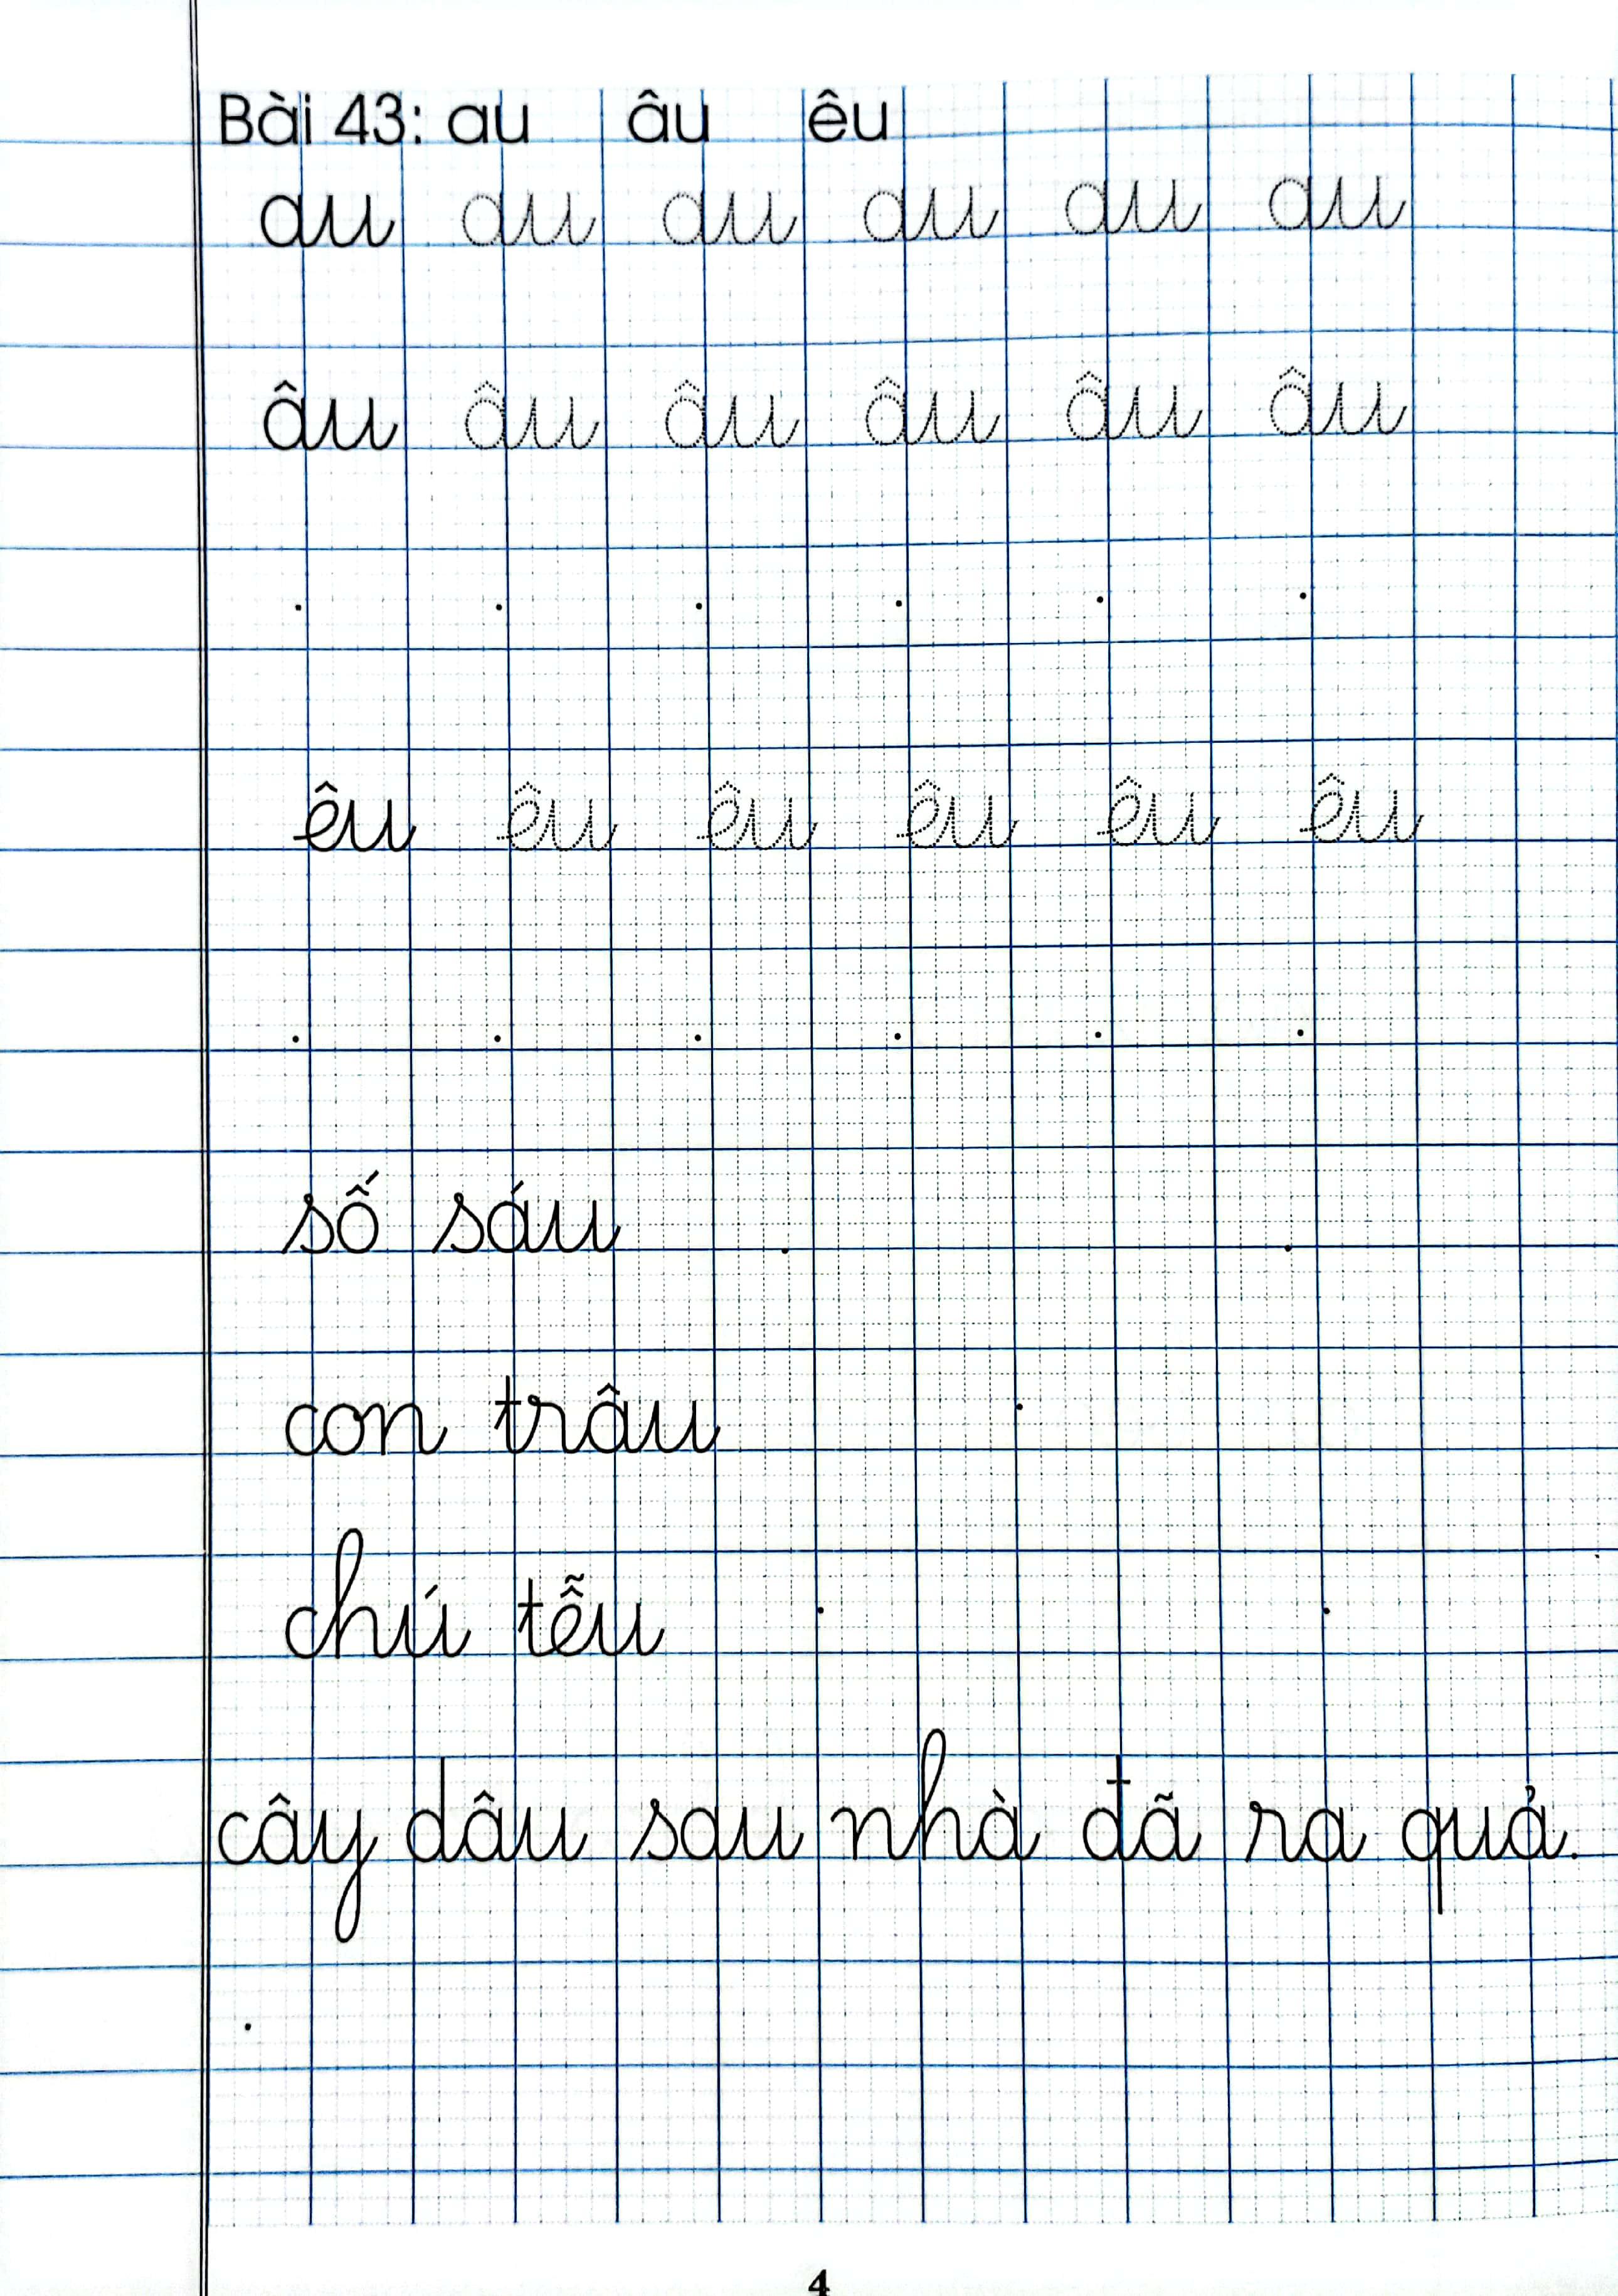 Bài 43: au âu êu
au au au au au au
âu âu âu âu âu âu
êu êu êu êu êu êu
số sáu
con trâu
chú tễu
cây dâu sau nhà đã ra quả.
4